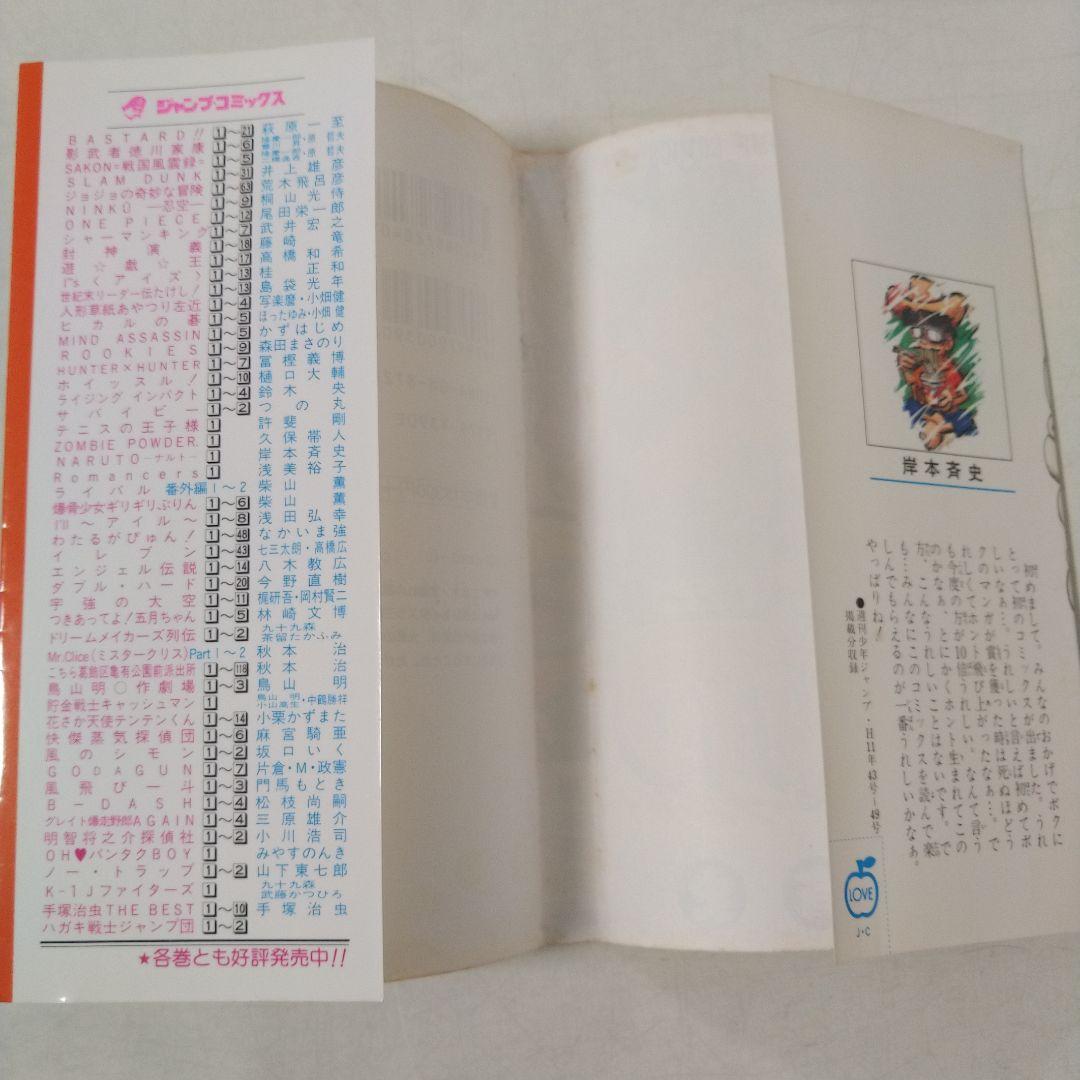 ジャンプコミックス
BASTARD!! 1〜21 萩原一至
影武者徳川家康 1〜6
SAKON=戦国風雲録= 1〜5
SLAM DUNK 1〜31 井上雄彦
ジョジョの奇妙な冒険 1〜63 荒木飛呂彦
NINKŪ —忍空— 1〜9 桐山光侍
ONE PIECE 1〜12 尾田栄一郎
シャーマンキング 1〜7 武井宏之
封神演義 1〜18 藤崎竜
遊☆戯☆王 1〜17 高橋和希
I"s〈アイズ〉 1〜13 桂正和
世紀末リーダー伝たけし! 1〜13 島袋光年
人形草紙あやつり左近 1〜4 写楽麿・小畑健
ヒカルの碁 1〜5 ほったゆみ・小畑健
MIND ASSASSIN 1〜5 かずはじめ
ROOKIES 1〜9 森田まさのり
HUNTER×HUNTER 1〜7 冨樫義博
ホイッスル! 1〜10 樋口大輔
ライジング インパクト 1〜4 鈴木央
サバイビー 1〜2 つの丸
テニスの王子様 1 許斐剛
ZOMBIE POWDER. 1 久保帯人
NARUTO—ナルト— 1 岸本斉史
Romancers 1 浅美裕子
ライバル 番外編1〜2 柴山薫
爆骨少女ギリギリぷりん 1〜6 柴山薫
I'll 〜アイル〜 1〜8 浅田弘幸
わたるがぴゅん! 1〜48 なかいま強
イレブン 1〜43 七三太朗・高橋広
エンジェル伝説 1〜14 八木教広
ダブル・ハード 1〜20 今野直樹
宇強の大空 1〜11 梶研吾・岡村賢二
つきあってよ!五月ちゃん 1〜5 林崎文博
ドリームメイカーズ列伝 1〜2 九十九森 茶留たかふみ
Mr.Clice(ミスタークリス) Part 1〜2 秋本治
こちら葛飾区亀有公園前派出所 1〜118 秋本治
鳥山明○作劇場 1〜3 鳥山明
貯金戦士キャッシュマン 1 鳥山明・中鶴勝祥 小山高生
花さか天使テンテンくん 1〜14 小栗かずまた
快傑蒸気探偵団 1〜6 麻宮騎亜
風のシモン 1〜2 坂口いく
GODAGUN 1〜7 片倉・M・政憲
風飛び一斗 1〜3 門馬もとき
B-DASH 1〜4 松枝尚嗣
グレイト爆走野郎AGAIN 1〜4 三原雄介
明智将之介探偵社 1〜2 小川浩司
OH♥バンタクBOY 1 みやすのんき
ノー・トラップ 1〜2 山下東七郎
K-1Jファイターズ 1 九十九森 武藤かつひろ
手塚治虫THE BEST 1〜10 手塚治虫
ハガキ戦士ジャンプ団 1〜2
★各巻とも好評発売中!!
岸本斉史
初めまして。みんなのおかげでボクに
とって初のコミックスが出ました。うれ
しいなぁ…。うれしいと言えば初めてボ
クのマンガが賞を獲った時は死ぬほどう
れしくてホント飛び上がったなぁ…。で
も今度の方が10倍うれしい。なんて言う
のかなぁ、とにかくホント生まれてこの
方、こんなうれしいことはないです。で
も…みんなにこのコミックスを読んで楽
しんでもらえるのが一番うれしいかなぁ。
やっぱりね!
●週刊少年ジャンプ・H11年43号〜49号
掲載分収録
LOVE
J・C